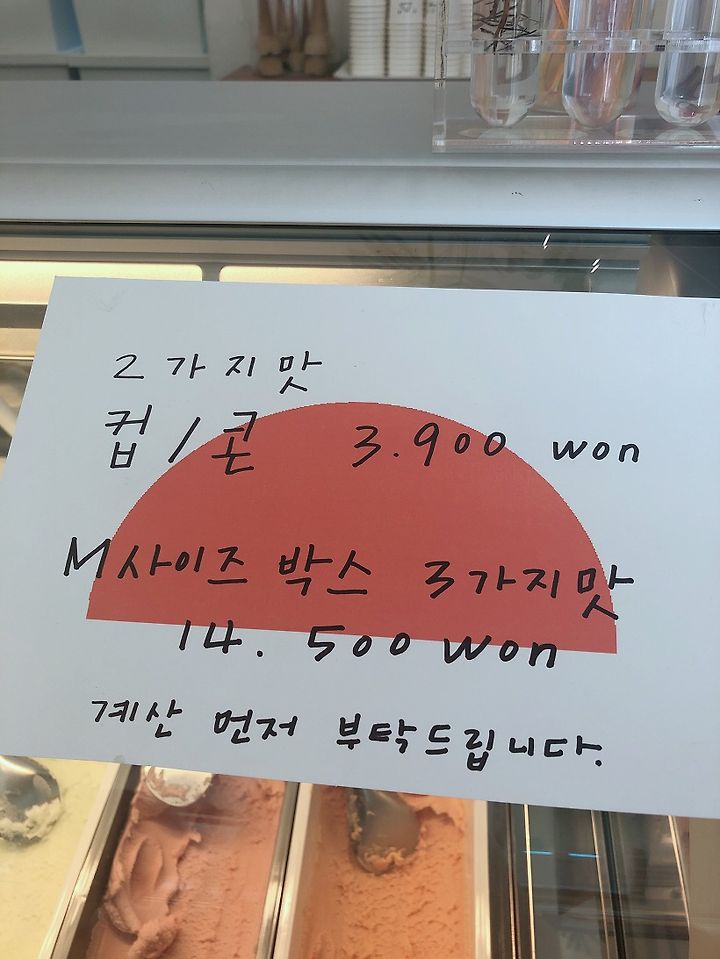 2가지맛
컵/콘 3.900 won
M사이즈 박스 3가지맛
14. 500 won
계산 먼저 부탁드립니다.